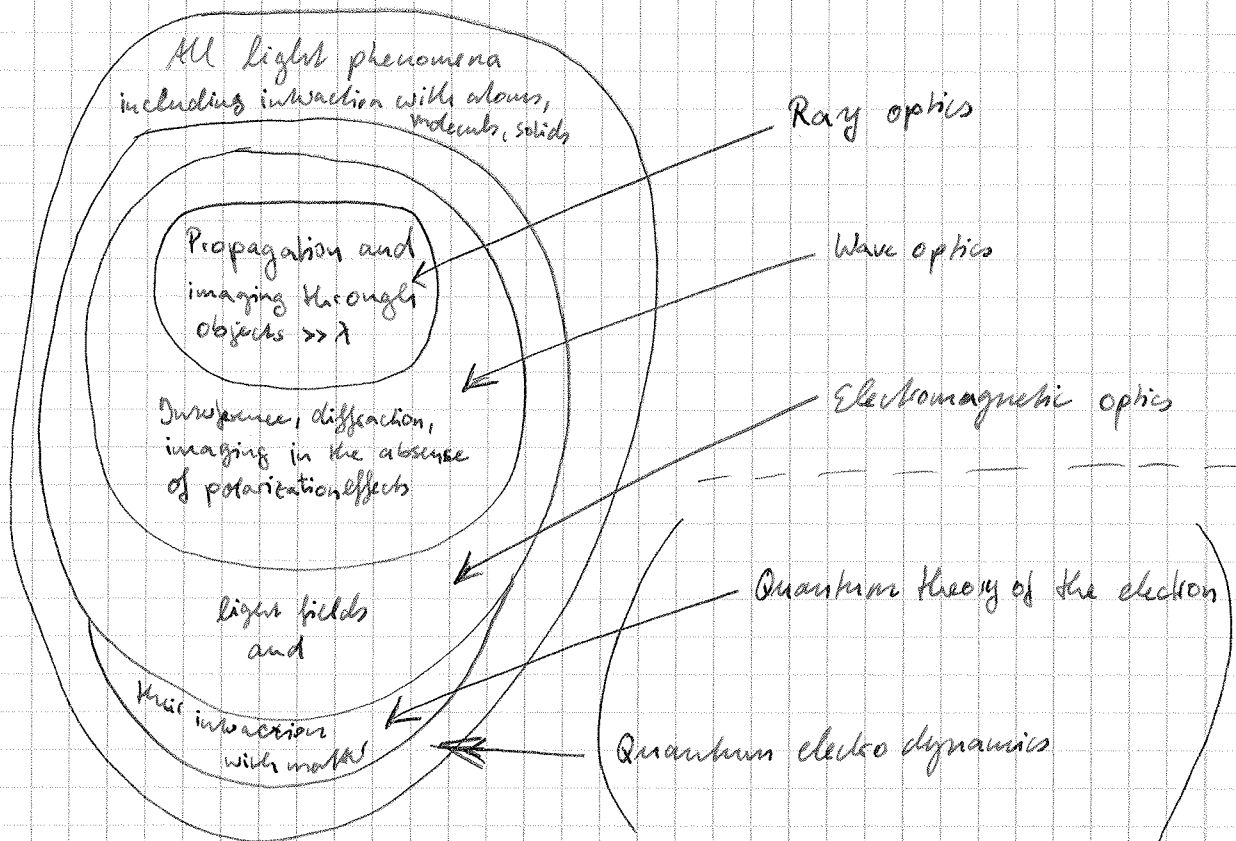 All light phenomena
including interaction with atoms,
molecules, solids
Propagation and
imaging through
objects >> λ
Interference, diffraction,
imaging in the absense
of polarization effects
light fields
and
their interaction
with matter
Ray optics
Wave optics
Electromagnetic optics
Quantum theory of the electron
Quantum electrodynamics